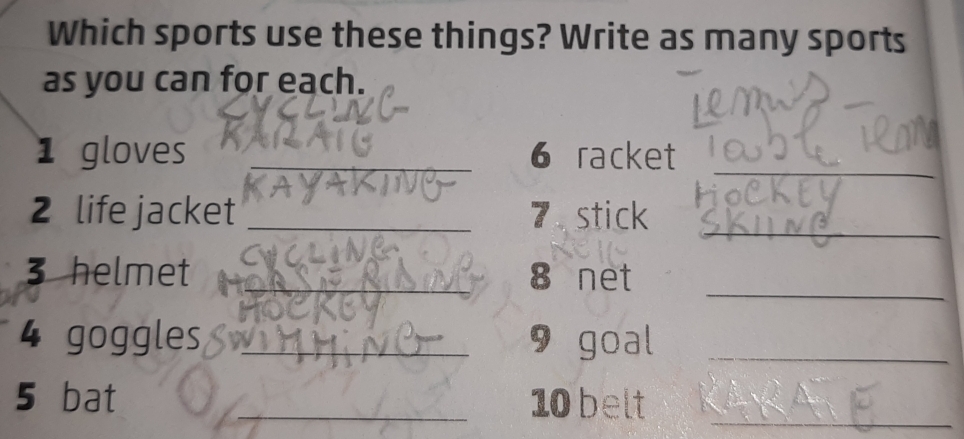 Which sports use these things? Write as many sports
as you can for each.
CYCLING
1 gloves
KAYAKING
2 life jacket
CYCLING
3 helmet HORSE RIDING
HOCKEY
4 goggles SWIMMING
5 bat
Tennis
6 racket Table
HOCKEY
7 stick SKIING
8 net
9 goal
10 belt KARATE